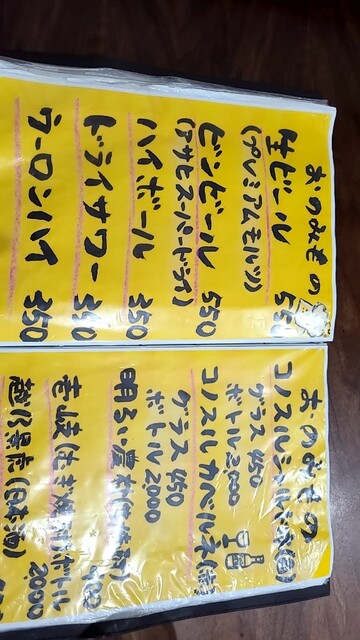 おのみもの
生ビール 550
(プレミアムモルツ)
ビンビール 550
(アサヒスーパードライ)
ハイボール 350
ドライサワー 350
ウーロンハイ 350
おのみもの
コノスル
グラス 450
ボトル 2000
コノスルカベルネ(赤)
グラス 450
ボトル 2000
明るい農村
壱岐
ボトル
2000
(日本酒)